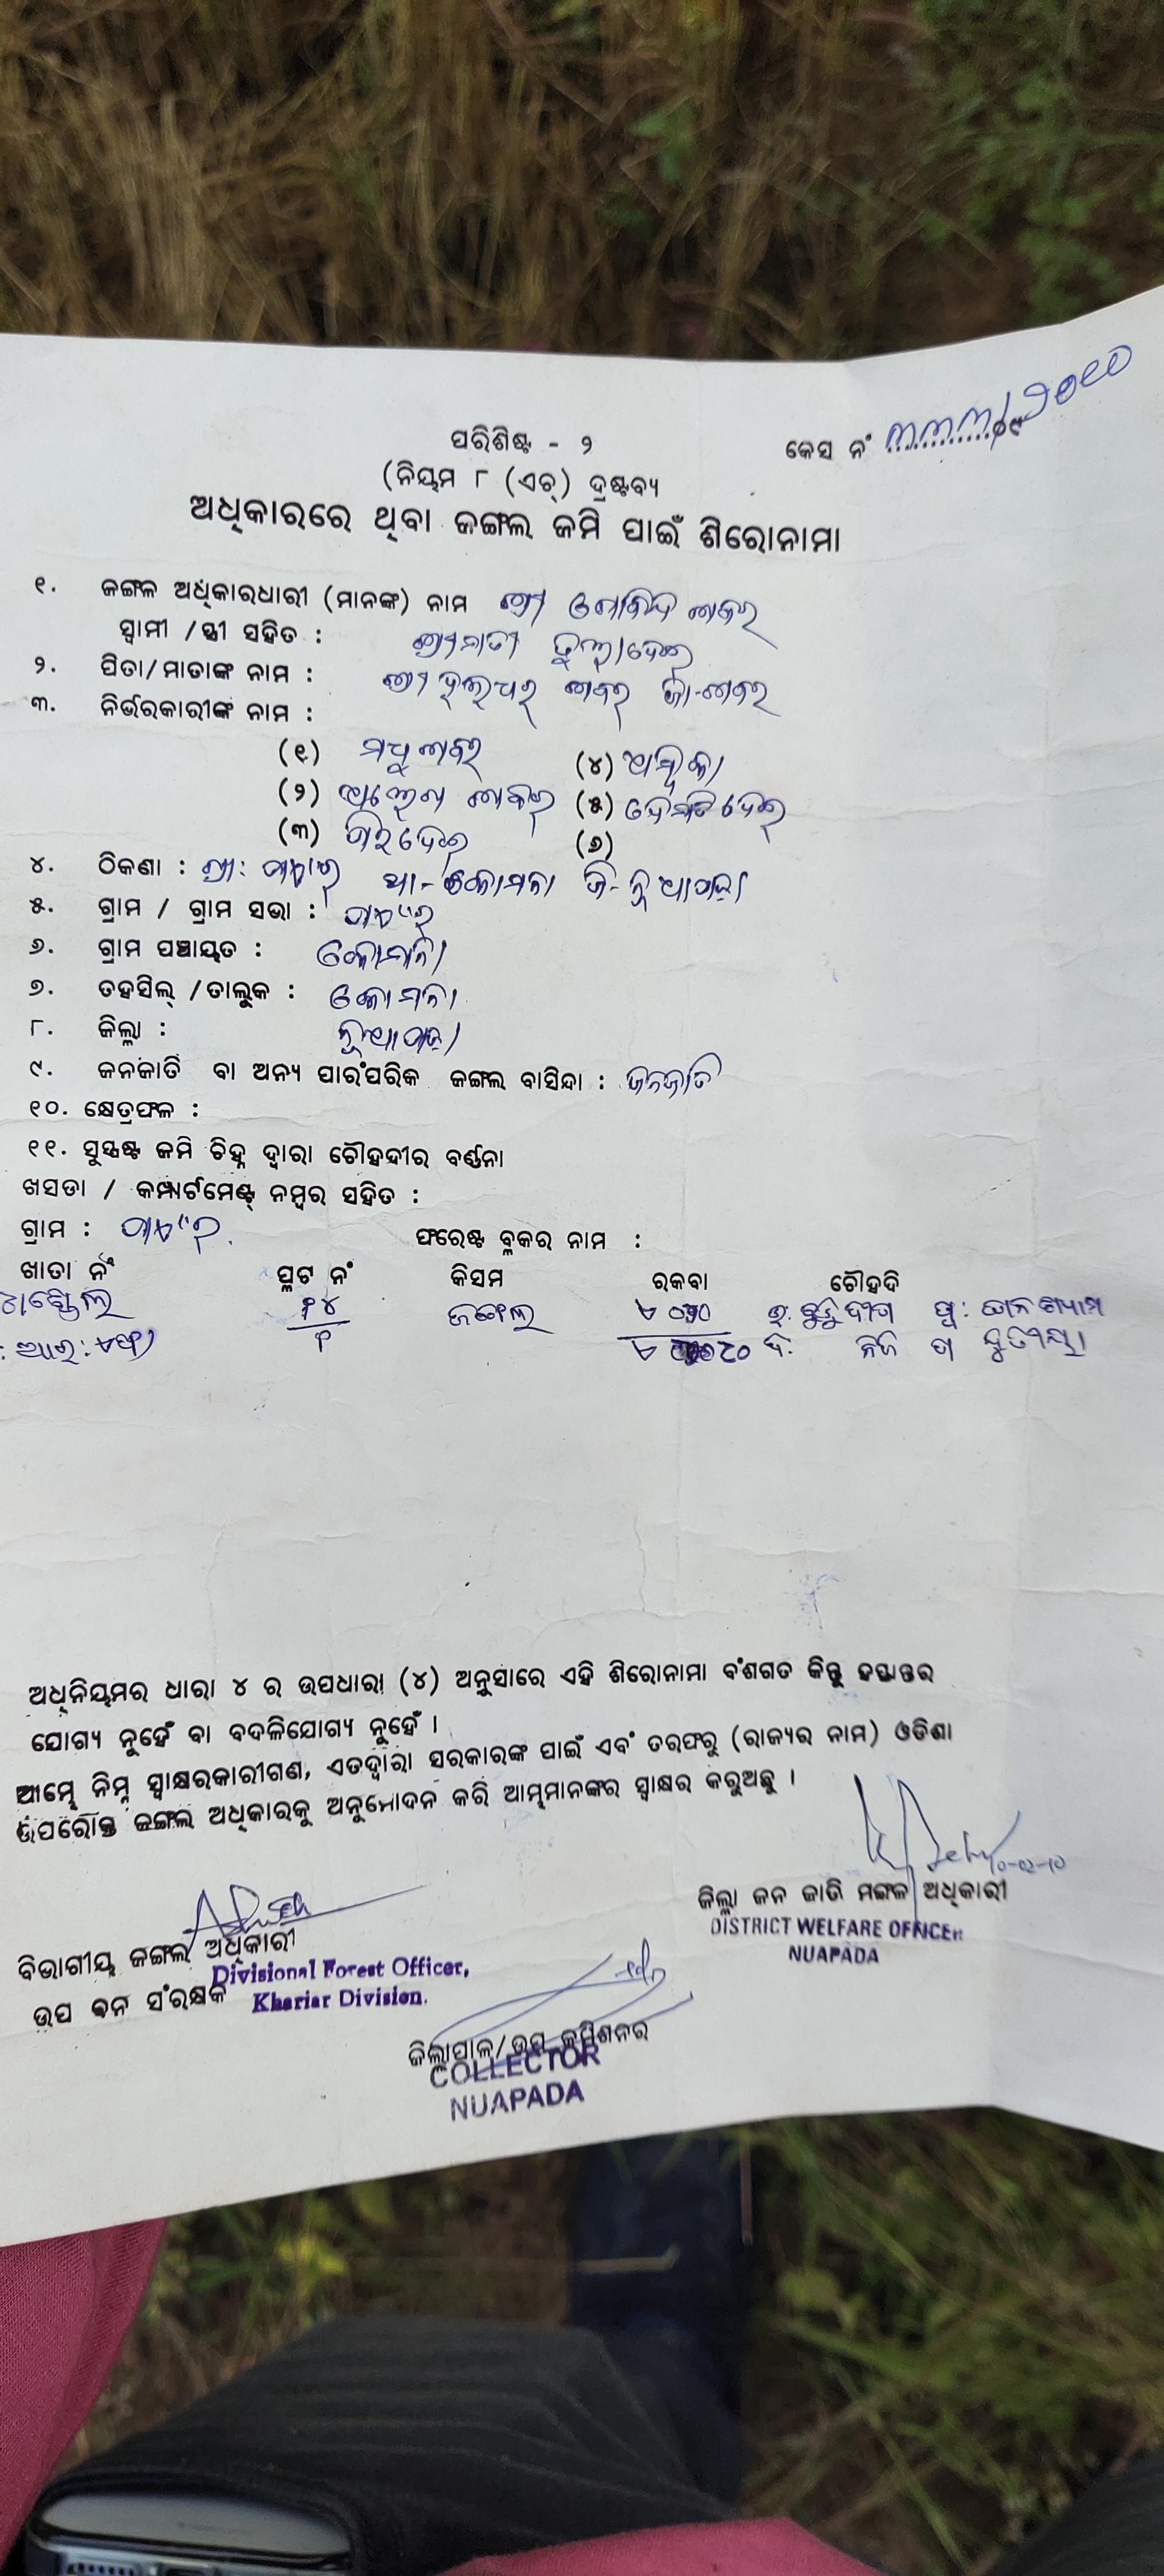 କେସ ନଂ ୩୩୩/୨୦୧୦
ପରିଶିଷ୍ଟ - ୨
(ନିୟମ ୮ (ଏଚ୍) ଦ୍ରଷ୍ଟବ୍ୟ
ଅଧିକାରରେ ଥିବା ଜଙ୍ଗଲ ଜମି ପାଇଁ ଶିରୋନାମା
୧. ଜଙ୍ଗଳ ଅର୍ଧିକାରଧାରୀ (ମାନଙ୍କ) ନାମ ଶ୍ରୀ ଗୋବିନ୍ଦ ଶବର
ସ୍ୱାମୀ / ସ୍ତ୍ରୀ ସହିତ : ଶ୍ରୀମତୀ
୨. ପିତା/ମାତାଙ୍କ ନାମ : ଶ୍ରୀ ହଳଧର ଶବର ଜା-ଶବର
୩. ନିର୍ଭରକାରୀଙ୍କ ନାମ :
(୧) ମଧୁ ଶବର (୪) ଅମ୍ବିକା
(୨) ଶବର (୫)
(୩) (୬)
୪. ଠିକଣା : ଗ୍ରା: ଥା-କୋମନା ଜି-ନୂଆପଡ଼ା
୫. ଗ୍ରାମ / ଗ୍ରାମ ସଭା :
୬. ଗ୍ରାମ ପଞ୍ଚାୟତ : କୋମନା
୭. ତହସିଲ୍ /ତାଲୁକ : କୋମନା
୮. ଜିଲ୍ଲା : ନୂଆପଡ଼ା
୯. ଜନଜାତି ବା ଅନ୍ୟ ପାରଂପରିକ ଜଙ୍ଗଲ ବାସିନ୍ଦା : ଜନଜାତି
୧୦. କ୍ଷେତ୍ରଫଳ :
୧୧. ସୁସ୍ପଷ୍ଟ ଜମି ଚିହ୍ନ ଦ୍ୱାରା ଚୌହଦ୍ଦୀର ବର୍ଣ୍ଣନା
ଖସଡା / କମ୍ପାର୍ଟମେଣ୍ଟ୍ ନମ୍ବର ସହିତ :
ଗ୍ରାମ : ଫରେଷ୍ଟ ବ୍ଲକର ନାମ :
ଖାତା ନଂ ପ୍ଲଟ ନଂ କିସମ ରକବା ଚୌହଦି
ଜଙ୍ଗଲ
ନିଜ
ଅଧିନିୟମର ଧାରା ୪ ର ଉପଧାରା (୪) ଅନୁସାରେ ଏହି ଶିରୋନାମା ବଂଶଗତ କିନ୍ତୁ ହସ୍ତାନ୍ତର
ଯୋଗ୍ୟ ନୁହେଁ ବା ବଦଳିଯୋଗ୍ୟ ନୁହେଁ ।
ଆମ୍ଭେ ନିମ୍ନ ସ୍ୱାକ୍ଷରକାରୀଗଣ, ଏତଦ୍ଦ୍ୱାରା ସରକାରଙ୍କ ପାଇଁ ଏବଂ ତରଫରୁ (ରାଜ୍ୟର ନାମ) ଓଡିଶା
ଉପରୋକ୍ତ ଜଙ୍ଗଲ ଅଧିକାରକୁ ଅନୁମୋଦନ କରି ଆମ୍ଭମାନଙ୍କର ସ୍ୱାକ୍ଷର କରୁଅଛୁ ।
ଜିଲ୍ଲା ଜନ ଜାତି ମଙ୍ଗଳ ଅଧିକାରୀ
DISTRICT WELFARE OFFICER
NUAPADA
ବିଭାଗୀୟ ଜଙ୍ଗଲ ଅଧିକାରୀ
Divisional Forest Officer,
ଉପ ବନ ସଂରକ୍ଷକ Khariar Division.
ଜିଲ୍ଲାପାଳ/ଉପ କମିଶନର
COLLECTOR
NUAPADA